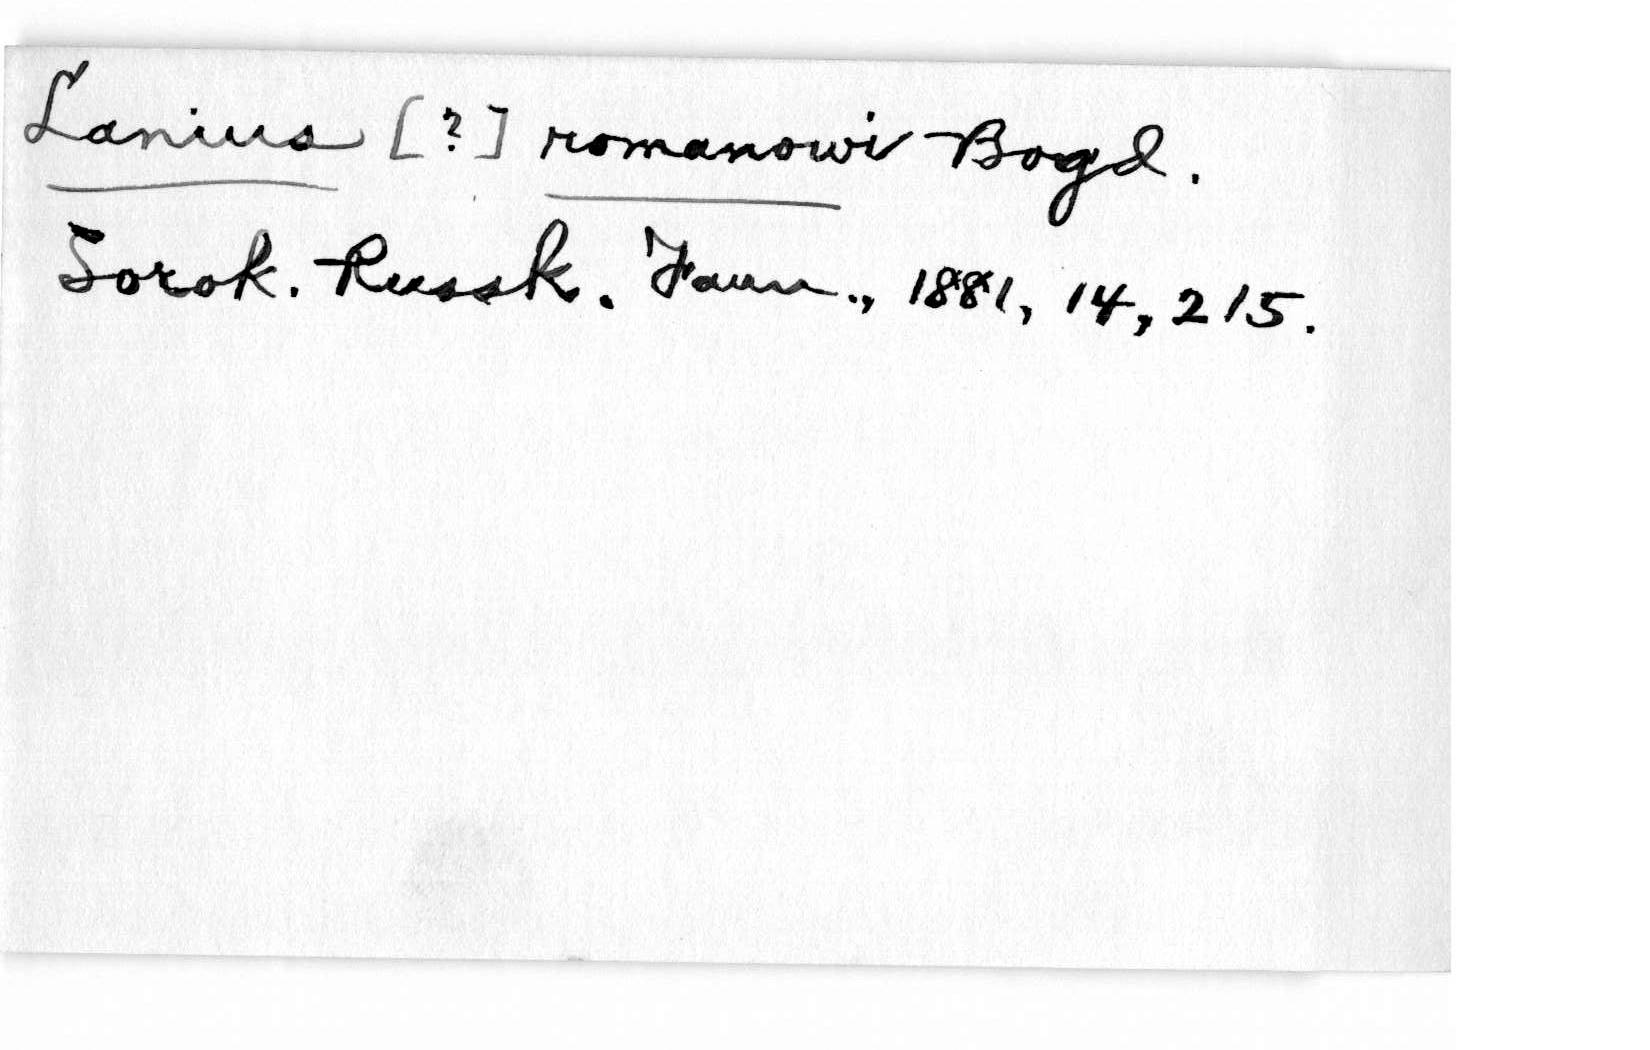 Lanius [?] romanowi Bogd.
Sorok. Russk. Faun., 1881, 14, 215.